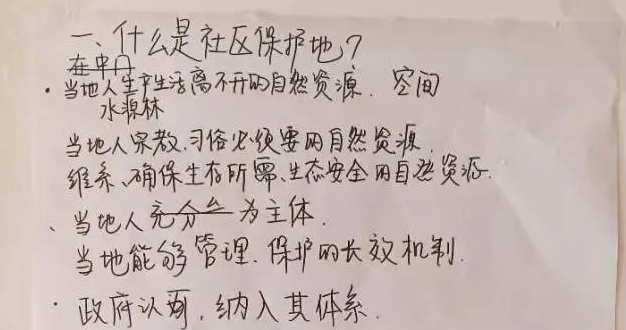 一、什么是社区保护地?
· 当地人生产生活离不开的自然资源、空间
水源林
当地人宗教、习俗必须要的自然资源
维系、确保生存所需、生态安全的自然资源.
、当地人充分 为主体.
当地能够管理、保护的长效机制.
· 政府认可,纳入其体系.